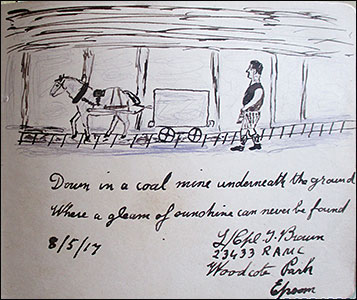 Down in a coal mine underneath the ground
Where a gleam of sunshine can never be found
8/5/17
L/Cpl. J. Brown
23433 RAMC
Woodcote Park
Epsom